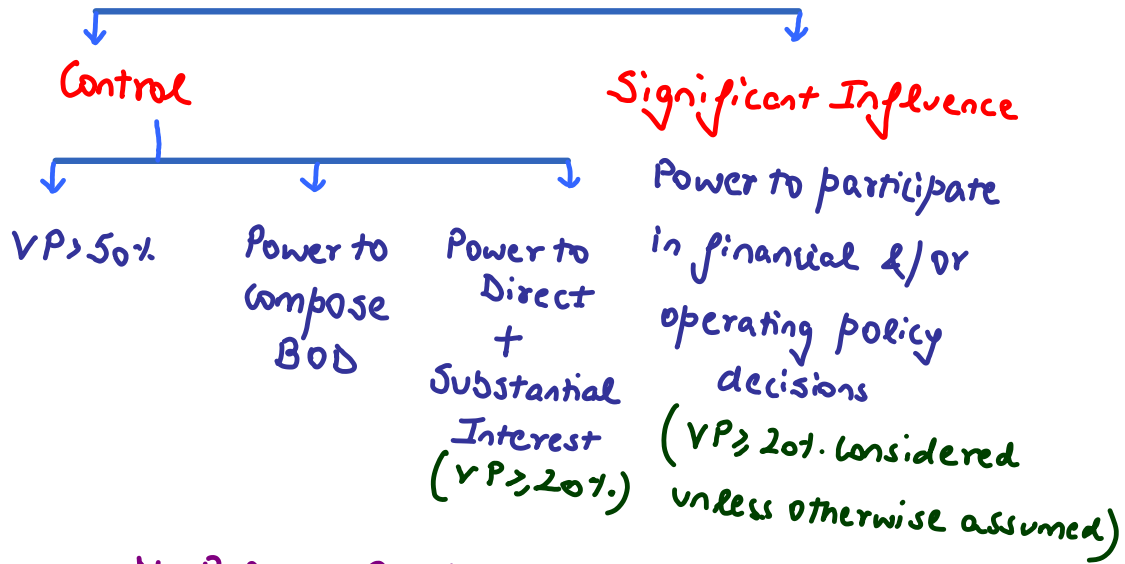 Control
VP > 50%
Power to
compose
BOD
Power to
Direct
+
Substantial
Interest
(VP ≥ 20%)
Significant Influence
Power to participate
in financial &/or
operating policy
decisions
(VP ≥ 20%. considered
unless otherwise assumed)